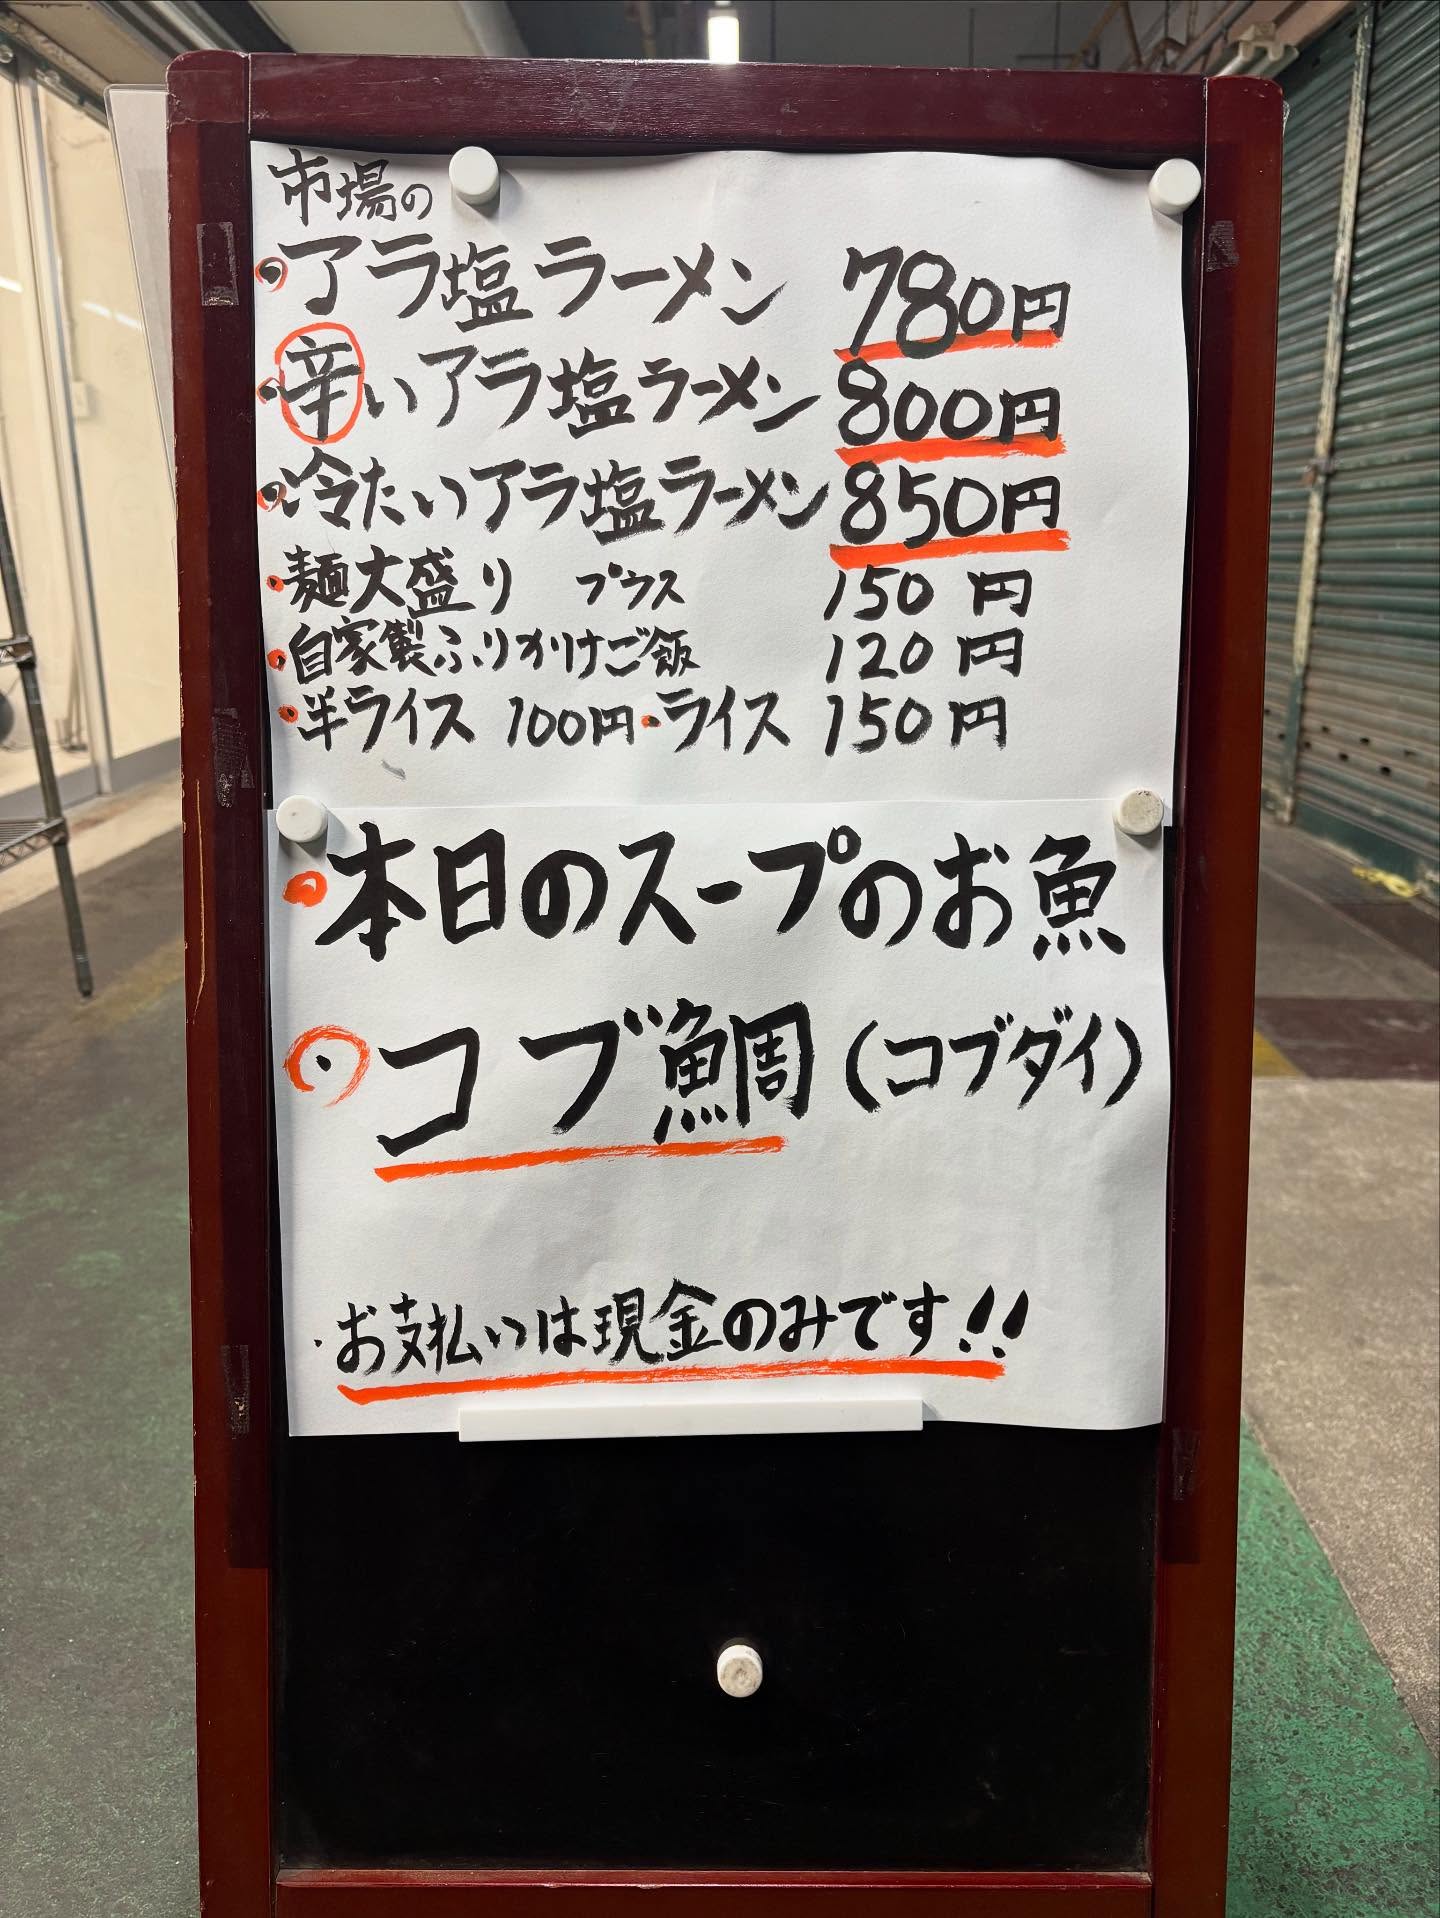 市場の
・アラ塩ラーメン 780円
・辛いアラ塩ラーメン 800円
・冷たいアラ塩ラーメン 850円
・麺大盛り プラス 150円
・自家製ふりかけご飯 120円
・半ライス 100円・ライス 150円
・本日のスープのお魚
・コブ鯛(コブダイ)
・お支払いは現金のみです!!